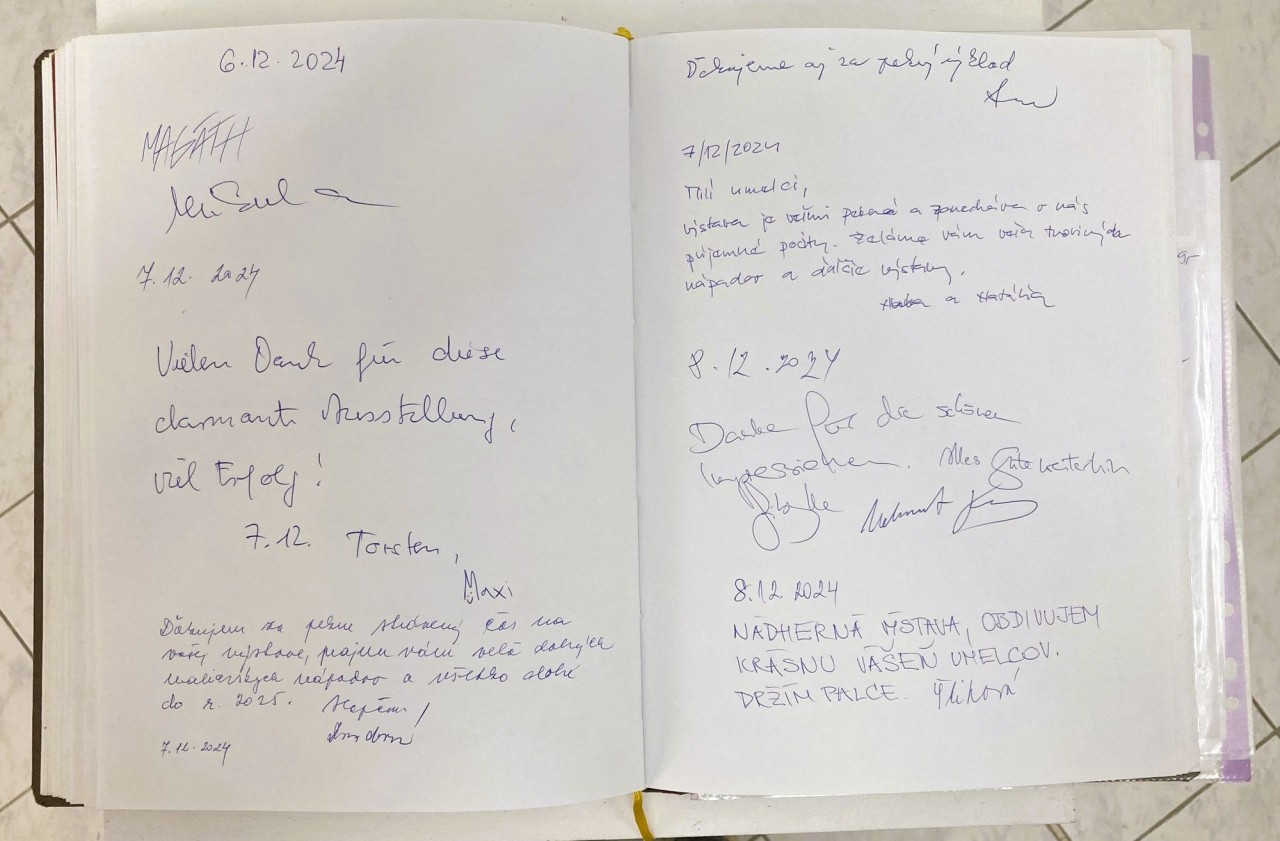 6.12.2024
MAGÁTH
7.12. 2024
Vielen Dank für diese
charmante Ausstellung,
viel Erfolg!
7.12. Torsten,
Maxi
Ďakujem za pekne strávený čas na
vašej výstave, prajem vám veľa dobrých
maliarskych nápadov a všetko dobré
do r. 2025.
7.12.2024
Ďakujeme aj za pekný výklad
7/12/2024
Milí umelci,
výstava je veľmi pekná a zanecháva v nás
príjemné pocity. Želáme vám veľa tvorivých
nápadov a ďalšie výstavy.
a Natália
8.12.2024
Danke für die schönen
Impressionen. Alles Gute weiterhin
Helmut
8.12 2024
NÁDHERNÁ VÝSTAVA, OBDIVUJEM
KRÁSNU VÁŠEŇ UMELCOV.
DRŽÍM PALCE.